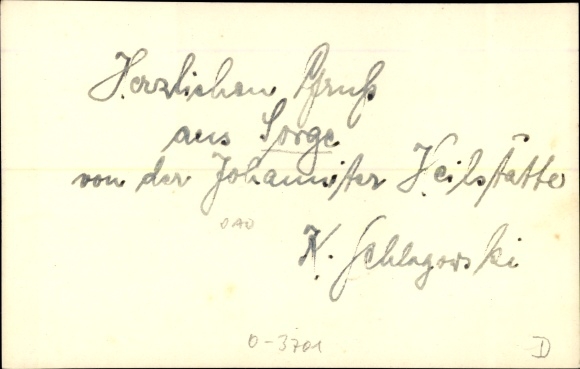 Herzlichen Gruß
aus Sorge
von der Johanniter Heilstätte
K. Schlagowski
OAO
0-3701
D